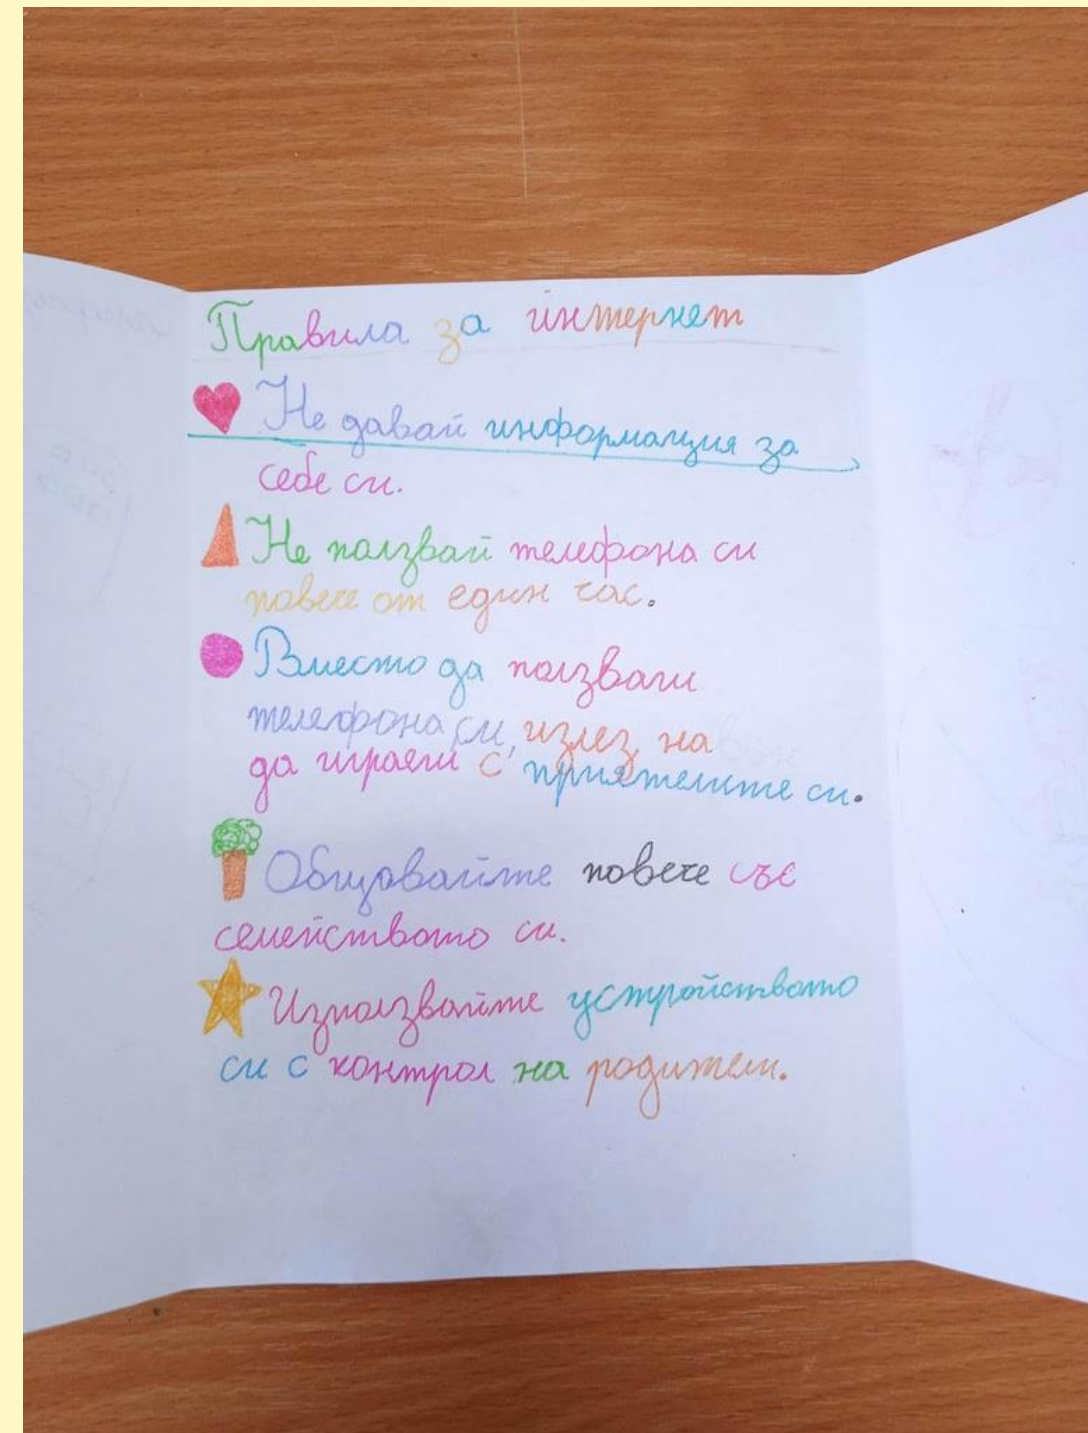 Правила за интернет
Не давай информация за
себе си.
Не ползвай телефона си
повече от един час.
Вместо да ползваш
телефона си, излез на
да играеш с приятелите си.
Общувайте повече със
семейството си.
Използвайте устройството
си с контрол на родители.